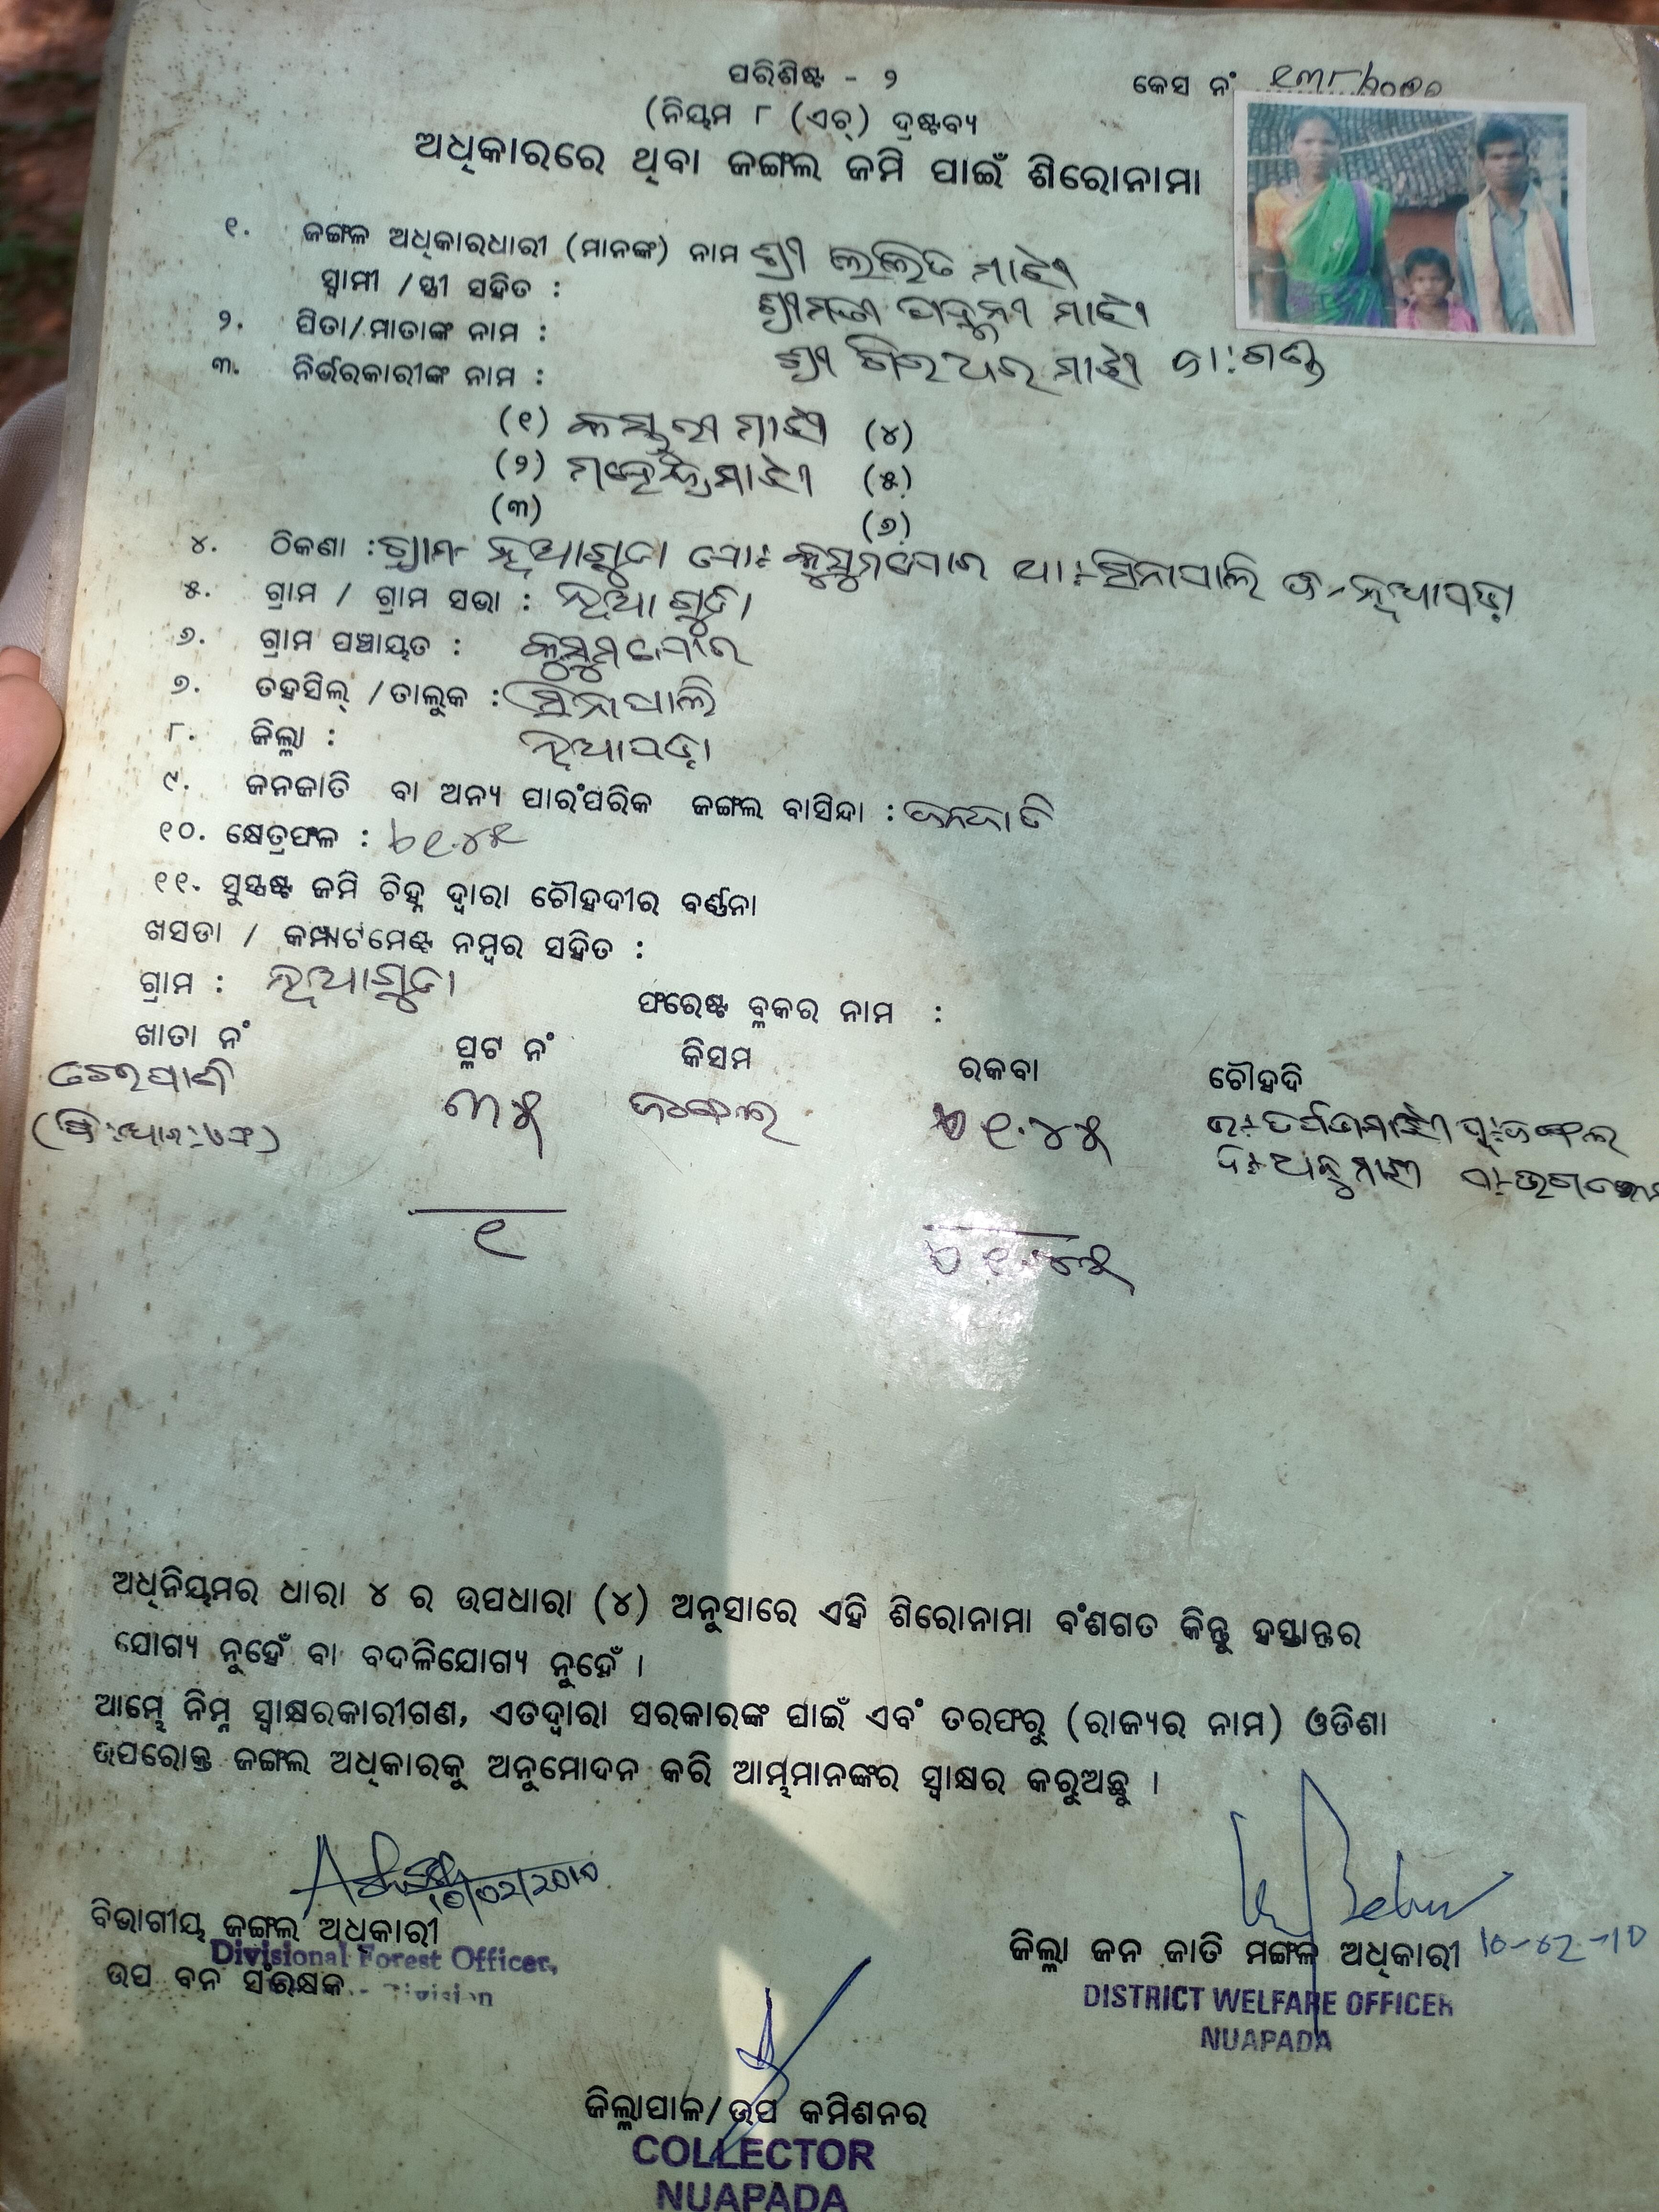 ପରିଶିଷ୍ଟ - ୨
କେସ ନଂ
(ନିୟମ ୮ (ଏଚ୍) ଦ୍ରଷ୍ଟବ୍ୟ
ଅଧିକାରରେ ଥିବା ଜଙ୍ଗଲ ଜମି ପାଇଁ ଶିରୋନାମା
୧. ଜଙ୍ଗଲ ଅଧିକାରଧାରୀ (ମାନଙ୍କ) ନାମ ଶ୍ରୀ ଲଳିତ ମାଝୀ
ସ୍ୱାମୀ /ସ୍ତ୍ରୀ ସହିତ : ଶ୍ରୀମତୀ ମାଝୀ
୨. ପିତା/ମାତାଙ୍କ ନାମ : ଶ୍ରୀ ଗିରିଧର ମାଝୀ ଜା:ଗଣ୍ଡ
୩. ନିର୍ଭରକାରୀଙ୍କ ନାମ :
(୧) କସ୍ତୁରୀ ମାଝୀ (୪)
(୨) ମହେନ୍ଦ୍ର ମାଝୀ (୫)
(୩) (୬)
୪. ଠିକଣା : ଗ୍ରାମ- ନୂଆଗୁଡା ପୋ:- କୁସୁମଜୋର ଥା:-ସିନାପାଲି ଜି-ନୂଆପଡ଼ା
୫. ଗ୍ରାମ / ଗ୍ରାମ ସଭା : ନୂଆଗୁଡା
୬. ଗ୍ରାମ ପଞ୍ଚାୟତ : କୁସୁମଜୋର
୭. ତହସିଲ୍ /ତାଲୁକ : ସିନାପାଲି
୮. ଜିଲ୍ଲା : ନୂଆପଡ଼ା
୯. ଜନଜାତି ବା ଅନ୍ୟ ପାରଂପରିକ ଜଙ୍ଗଲ ବାସିନ୍ଦା : ଜନଜାତି
୧୦. କ୍ଷେତ୍ରଫଳ : ୨୧.୪୫
୧୧. ସୁସ୍ପଷ୍ଟ ଜମି ଚିହ୍ନ ଦ୍ୱାରା ଚୌହଦୀର ବର୍ଣ୍ଣନା
ଖସଡା / କମ୍ପାର୍ଟମେଣ୍ଟ ନମ୍ବର ସହିତ :
ଗ୍ରାମ : ନୂଆଗୁଡା
ଫରେଷ୍ଟ ବ୍ଲକର ନାମ :
ଖାତା ନଂ ପ୍ଳଟ ନଂ କିସମ ରକବା ଚୌହଦି
୩୫ ଜଙ୍ଗଲ ୨୧.୪୫
୧ ୨୧.୪୫
ଅଧିନିୟମର ଧାରା ୪ ର ଉପଧାରା (୪) ଅନୁସାରେ ଏହି ଶିରୋନାମା ବଂଶଗତ କିନ୍ତୁ ହସ୍ତାନ୍ତର
ଯୋଗ୍ୟ ନୁହେଁ ବା ବଦଳିଯୋଗ୍ୟ ନୁହେଁ ।
ଆମ୍ଭେ ନିମ୍ନ ସ୍ୱାକ୍ଷରକାରୀଗଣ, ଏତଦ୍ୱାରା ସରକାରଙ୍କ ପାଇଁ ଏବଂ ତରଫରୁ (ରାଜ୍ୟର ନାମ) ଓଡିଶା
ଉପରୋକ୍ତ ଜଙ୍ଗଲ ଅଧିକାରକୁ ଅନୁମୋଦନ କରି ଆମ୍ଭମାନଙ୍କର ସ୍ୱାକ୍ଷର କରୁଅଛୁ ।
10/02/2010
ବିଭାଗୀୟ ଜଙ୍ଗଲ ଅଧିକାରୀ
Divisional Forest Officer,
ଉପ ବନ ସଂରକ୍ଷକ
Division
ଜିଲ୍ଲା ଜନ ଜାତି ମଙ୍ଗଳ ଅଧିକାରୀ 10-02-10
DISTRICT WELFARE OFFICER
NUAPADA
ଜିଲ୍ଲାପାଳ/ଉପ କମିଶନର
COLLECTOR
NUAPADA